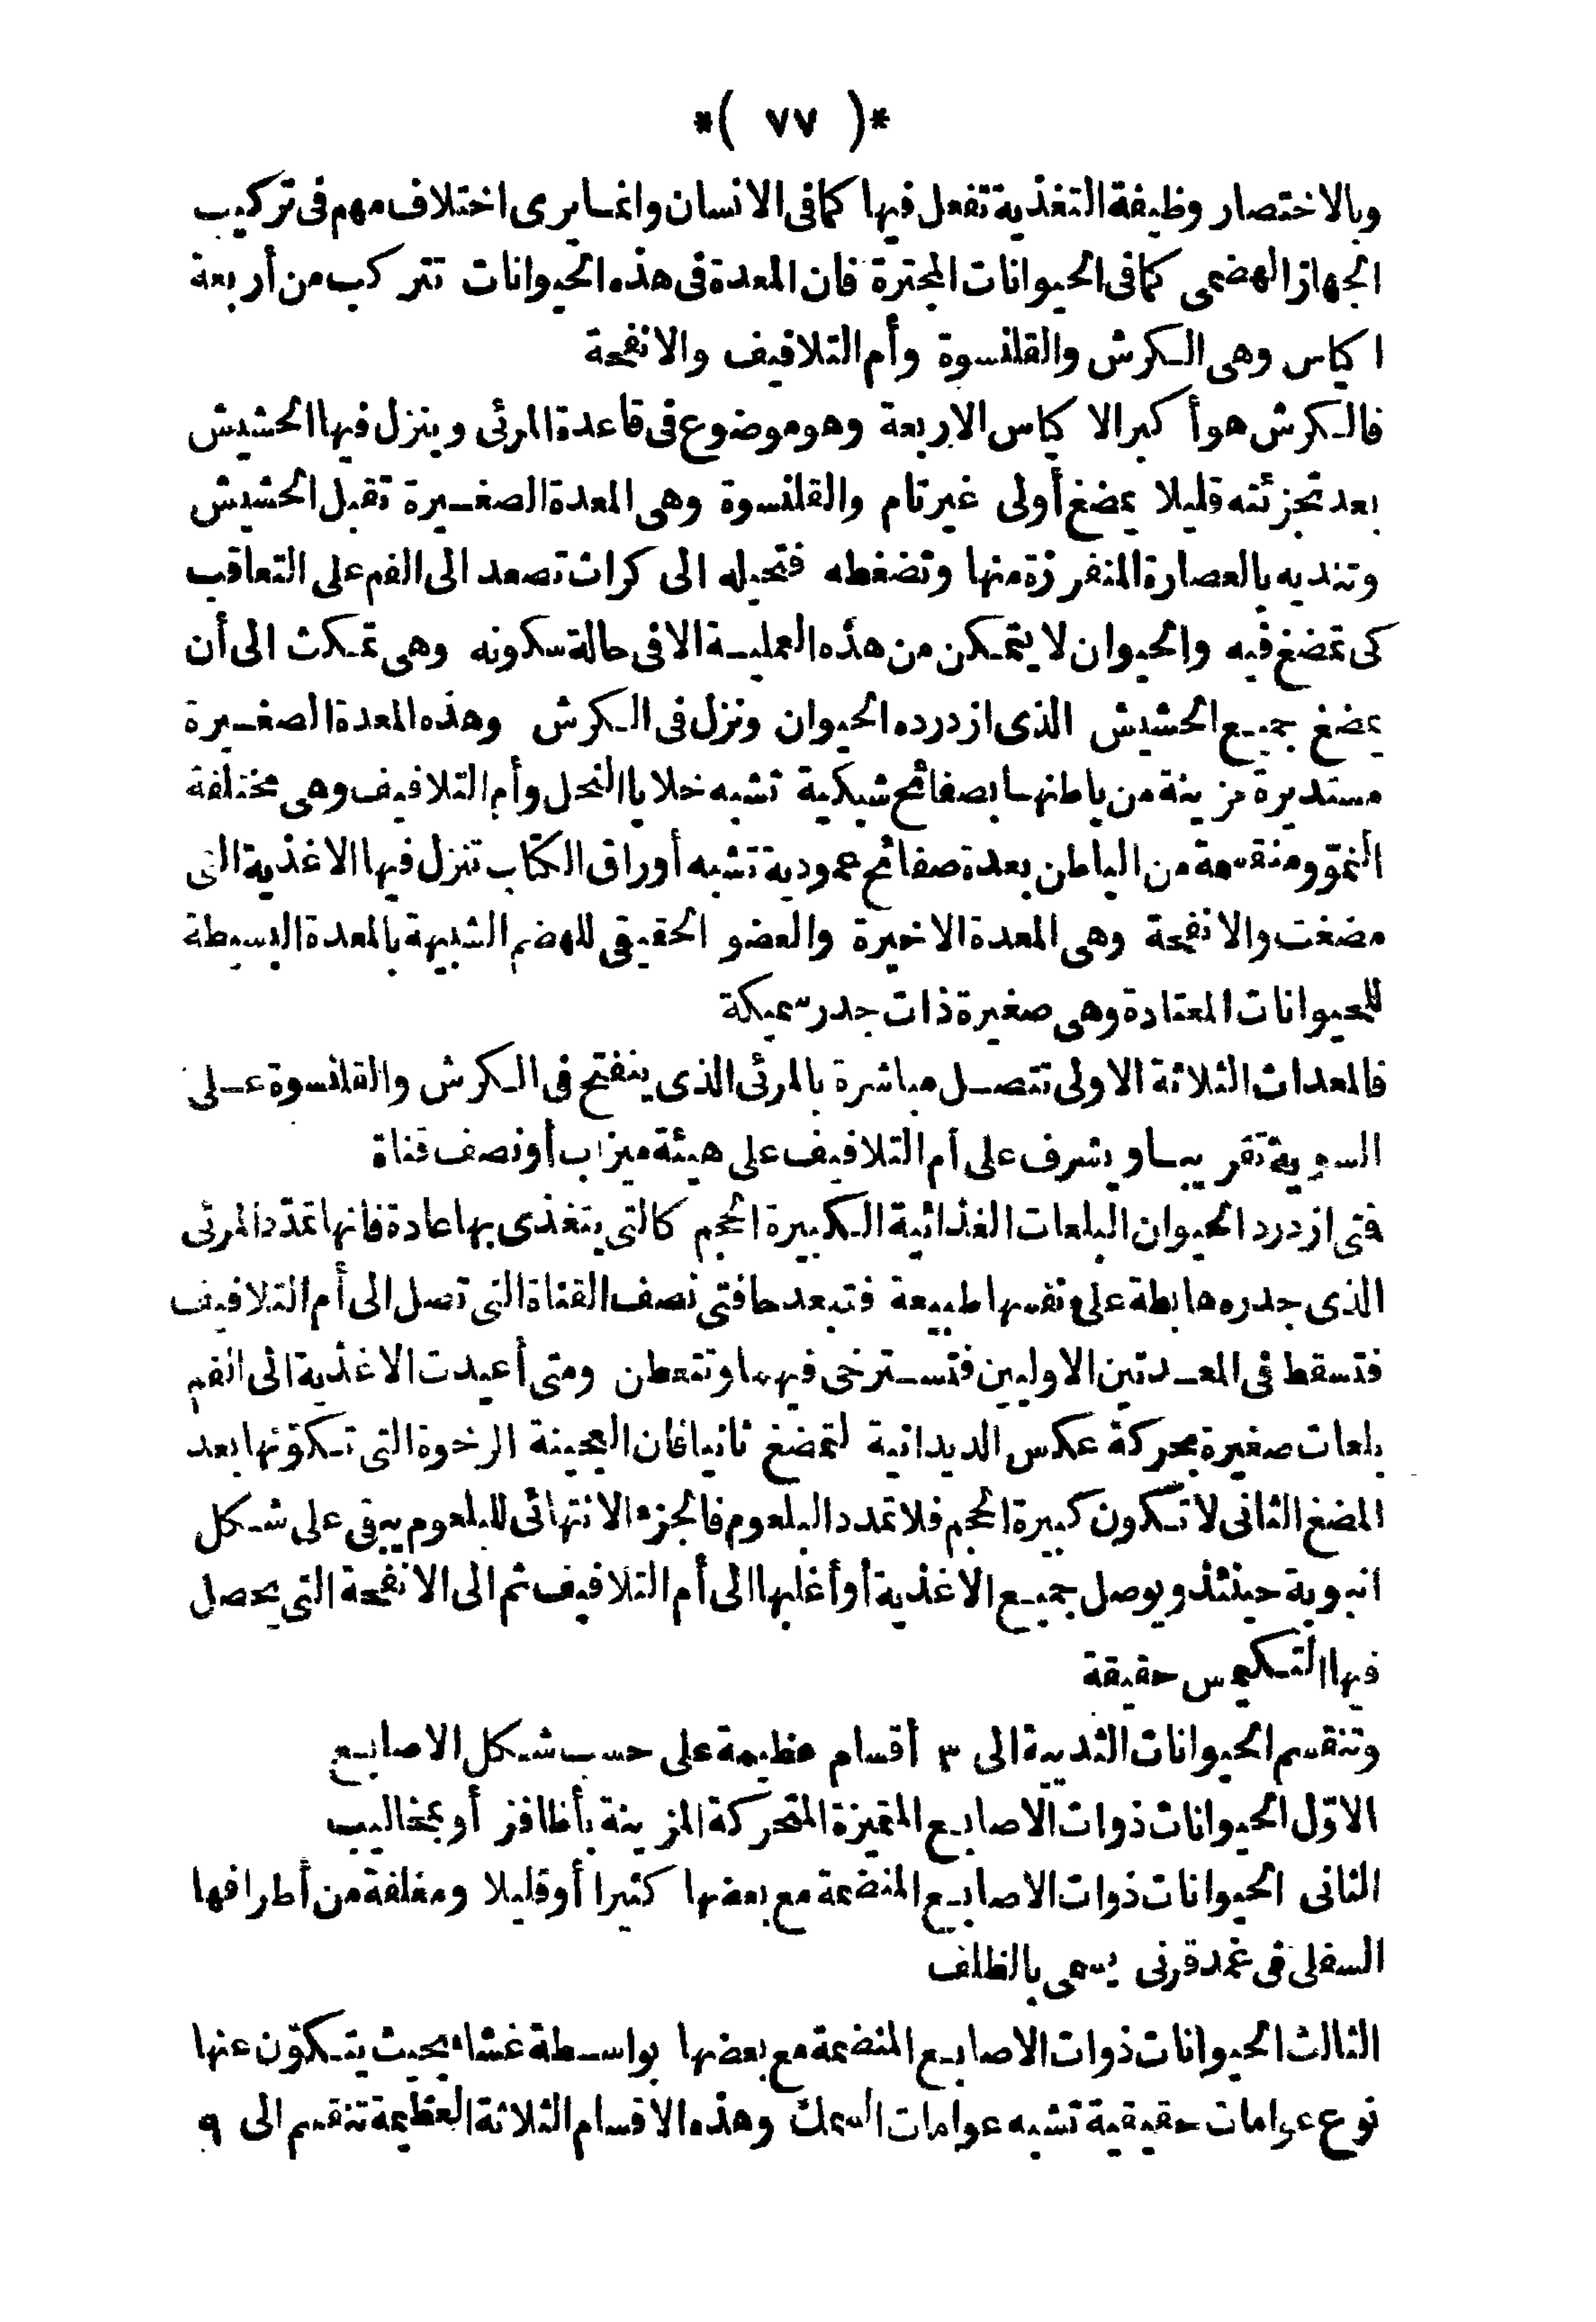 *( ٧٧ )*
وبالاختصار وظيفة التغذية تفعل فيها كما فى الانسان وانما يرى اختلاف مهم فى تركيب
الجهاز الهضمى كما فى الحيوانات المجترة فان المعدة فى هذه الحيوانات تتركب من أربعة
اكياس وهى الكرش والقلنسوة وأم التلافيف والانفحة
فالكرش هو أكبر الاكياس الاربعة وهو موضوع فى قاعدة المرئى وينزل فيها الحشيش
بعد تجزئته قليلا بمضغ أولى غير تام والقلنسوة وهى المعدة الصغيرة تقبل الحشيش
وتنديه بالعصارة المنفرزة منها وتضغطه فتحيله الى كرات تصعد الى الفم على التعاقب
كى تمضغ فيه والحيوان لا يتمكن من هذه العملية الا فى حالة سكونه وهى تمكث الى أن
يمضغ جميع الحشيش الذى ازدرده الحيوان ونزل فى الكرش وهذه المعدة الصغيرة
مستديرة مزينة من باطنها بصفائح شبكية تشبه خلايا النحل وأم التلافيف وهى مختلفة
النموّ ومنقسمة من الباطن بعدة صفائح عمودية تشبه أوراق الكتاب تنزل فيها الاغذية التى
مضغت والانفحة وهى المعدة الاخيرة والعضو الحقيقى للهضم الشبيهة بالمعدة البسيطة
للحيوانات المعتادة وهى صغيرة ذات جدر سميكة
فالمعدات الثلاثة الاولى تتصل مباشرة بالمرئى الذى ينفتح فى الكرش والقلنسوة على
السوية تقريبا ويشرف على أم التلافيف على هيئة ميزاب أو نصف قناة
فتى ازدرد الحيوان البلعات الغذائية الكبيرة الحجم كالتى يتغذى بها عادة فانها تمدّد المرئى
الذى جدره هابطة على نفسها طبيعة فتبعد حافتى نصف القناة التى تصل الى أم التلافيف
فتسقط فى المعدتين الاوليين فتسترخى فيهما وتتعطن ومتى أعيدت الاغذية الى الفم
بلعات صغيرة بحركة عكس الديدانية لتمضغ ثانيا فان العجينة الرخوة التى تكوّنها بعد
المضغ الثانى لا تكون كبيرة الحجم فلا تمدد البلعوم فالجزء الانتهائى للبلعوم يبقى على شكل
انبوبة حينئذ ويوصل جميع الاغذية أو أغلبها الى أم التلافيف ثم الى الانفحة التى يحصل
فيها التكيمس حقيقة
وتنقسم الحيوانات الثديية الى ٣ أقسام عظيمة على حسب شكل الاصابع
الاوّل الحيوانات ذوات الاصابع المتميزة المتحركة المزينة بأظافز أو بمخاليب
الثانى الحيوانات ذوات الاصابع المنضمة مع بعضها كثيرا أو قليلا ومغلفة من أطرافها
السفلى فى غمد قرنى يسمى بالظلف
الثالث الحيوانات ذوات الاصابع المنضمة مع بعضها بواسطة غشاء بحيث يتكوّن عنها
نوع عوامات حقيقية تشبه عوامات السمك وهذه الاقسام الثلاثة العظيمة تنقسم الى ٩